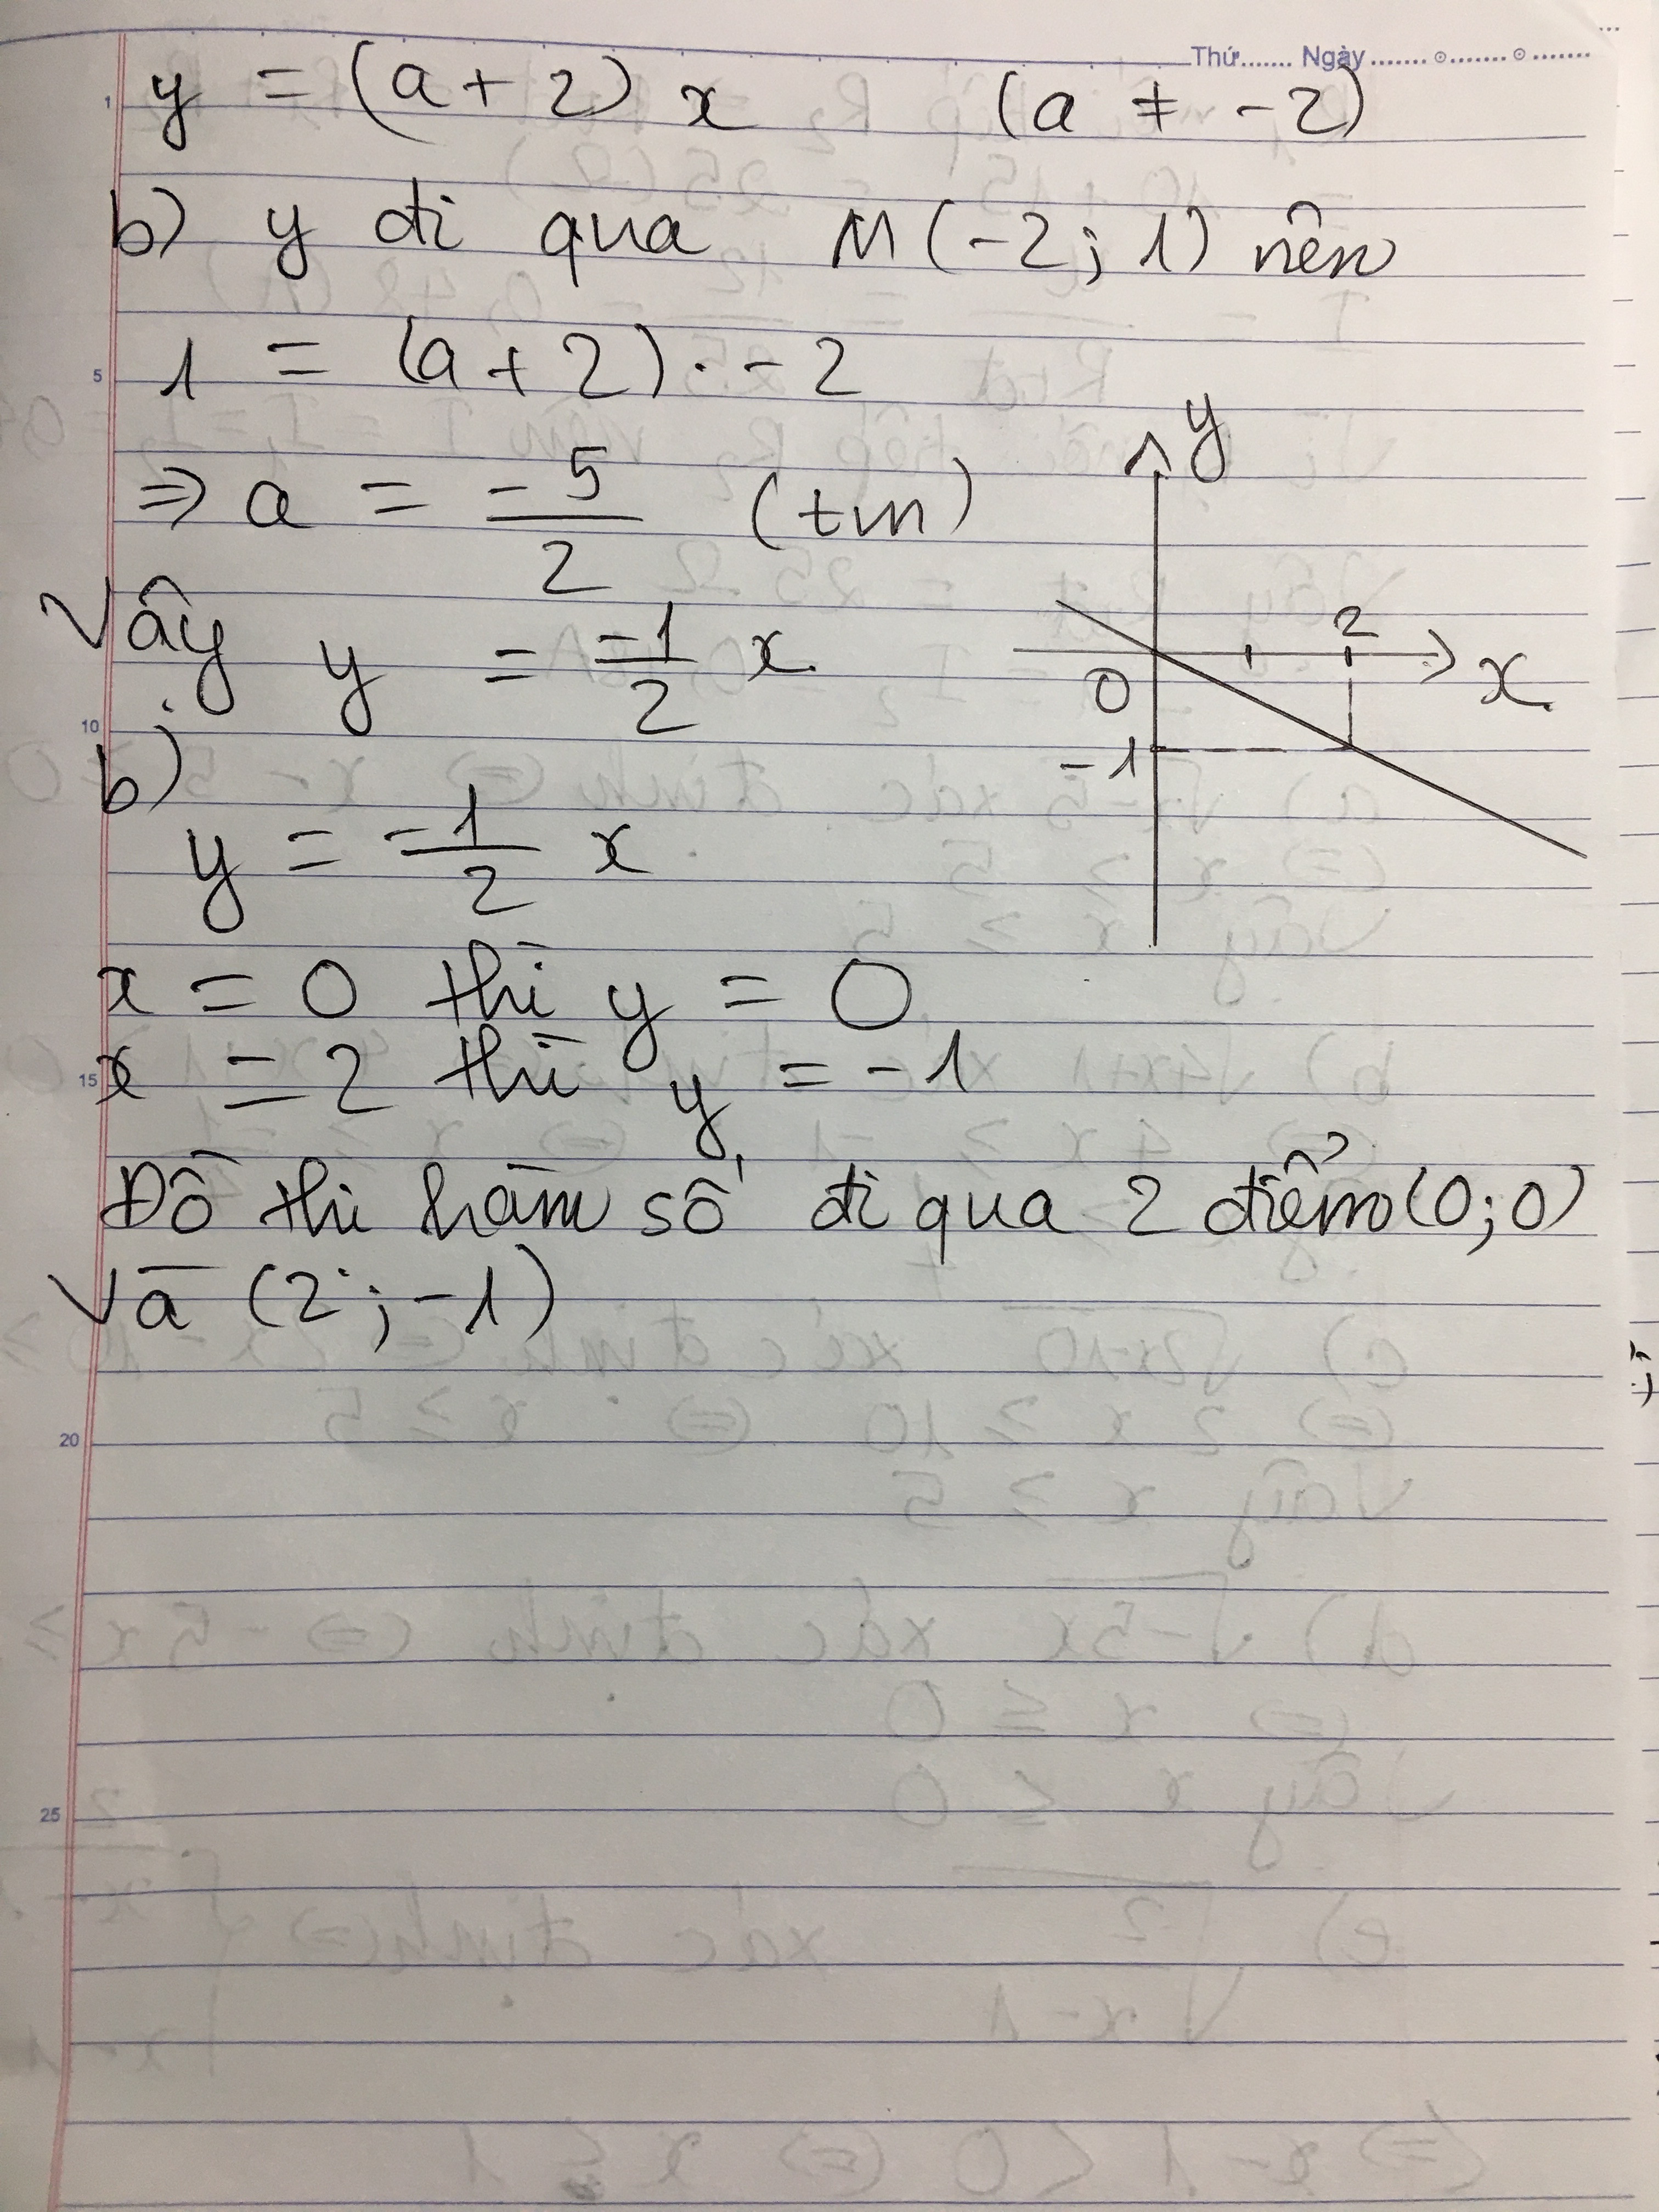 Thứ....... Ngày ....... ๏....... ๏ .......
1
y = (a + 2) x (a ≠ -2)
b) y đi qua M(-2; 1) nên
1 = (a + 2) . -2
5
⇒ a = -5/2 (tm)
Vậy y = -1/2 x
10
b)
y = -1/2 x
x = 0 thì y = 0
15
x = 2 thì y = -1
Đồ thị hàm số đi qua 2 điểm (0; 0)
Và (2; -1)
20
25
y
2
0
x
-1